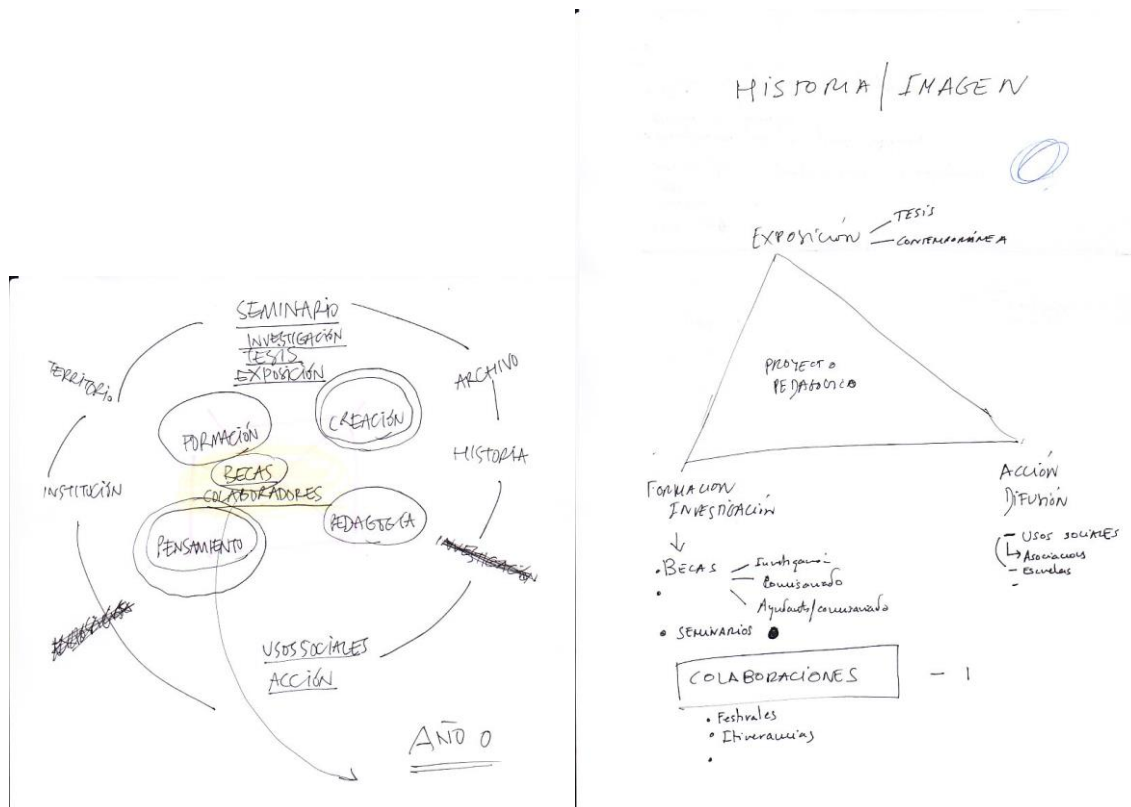 SEMINARIO
INVESTIGACIÓN
TESIS
EXPOSICIÓN
TERRITORIO
ARCHIVO
FORMACIÓN
CREACIÓN
HISTORIA
BECAS
COLABORADORES
INSTITUCIÓN
PENSAMIENTO
PEDAGOGÍA
INVESTIGACIÓN
USOS SOCIALES
ACCIÓN
AÑO 0
HISTORIA / IMAGEN
EXPOSICIÓN
TESIS
CONTEMPORÁNEA
PROYECTO
PEDAGOGICO
FORMACION
INVESTIGACIÓN
ACCIÓN
DIFUSIÓN
- USOS SOCIALES
Asociaciones
- Escuelas
-
• BECAS
Comisariado
Ayudante/comisariado
•
• SEMINARIOS
COLABORACIONES - 1
• Festivales
• Itinerancias
•